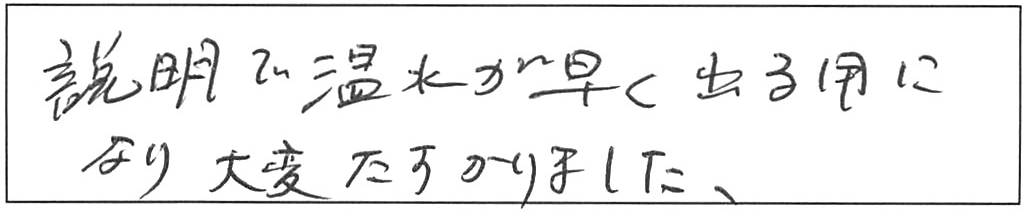 説明で温水が早く出る用に
なり大変たすかりました、